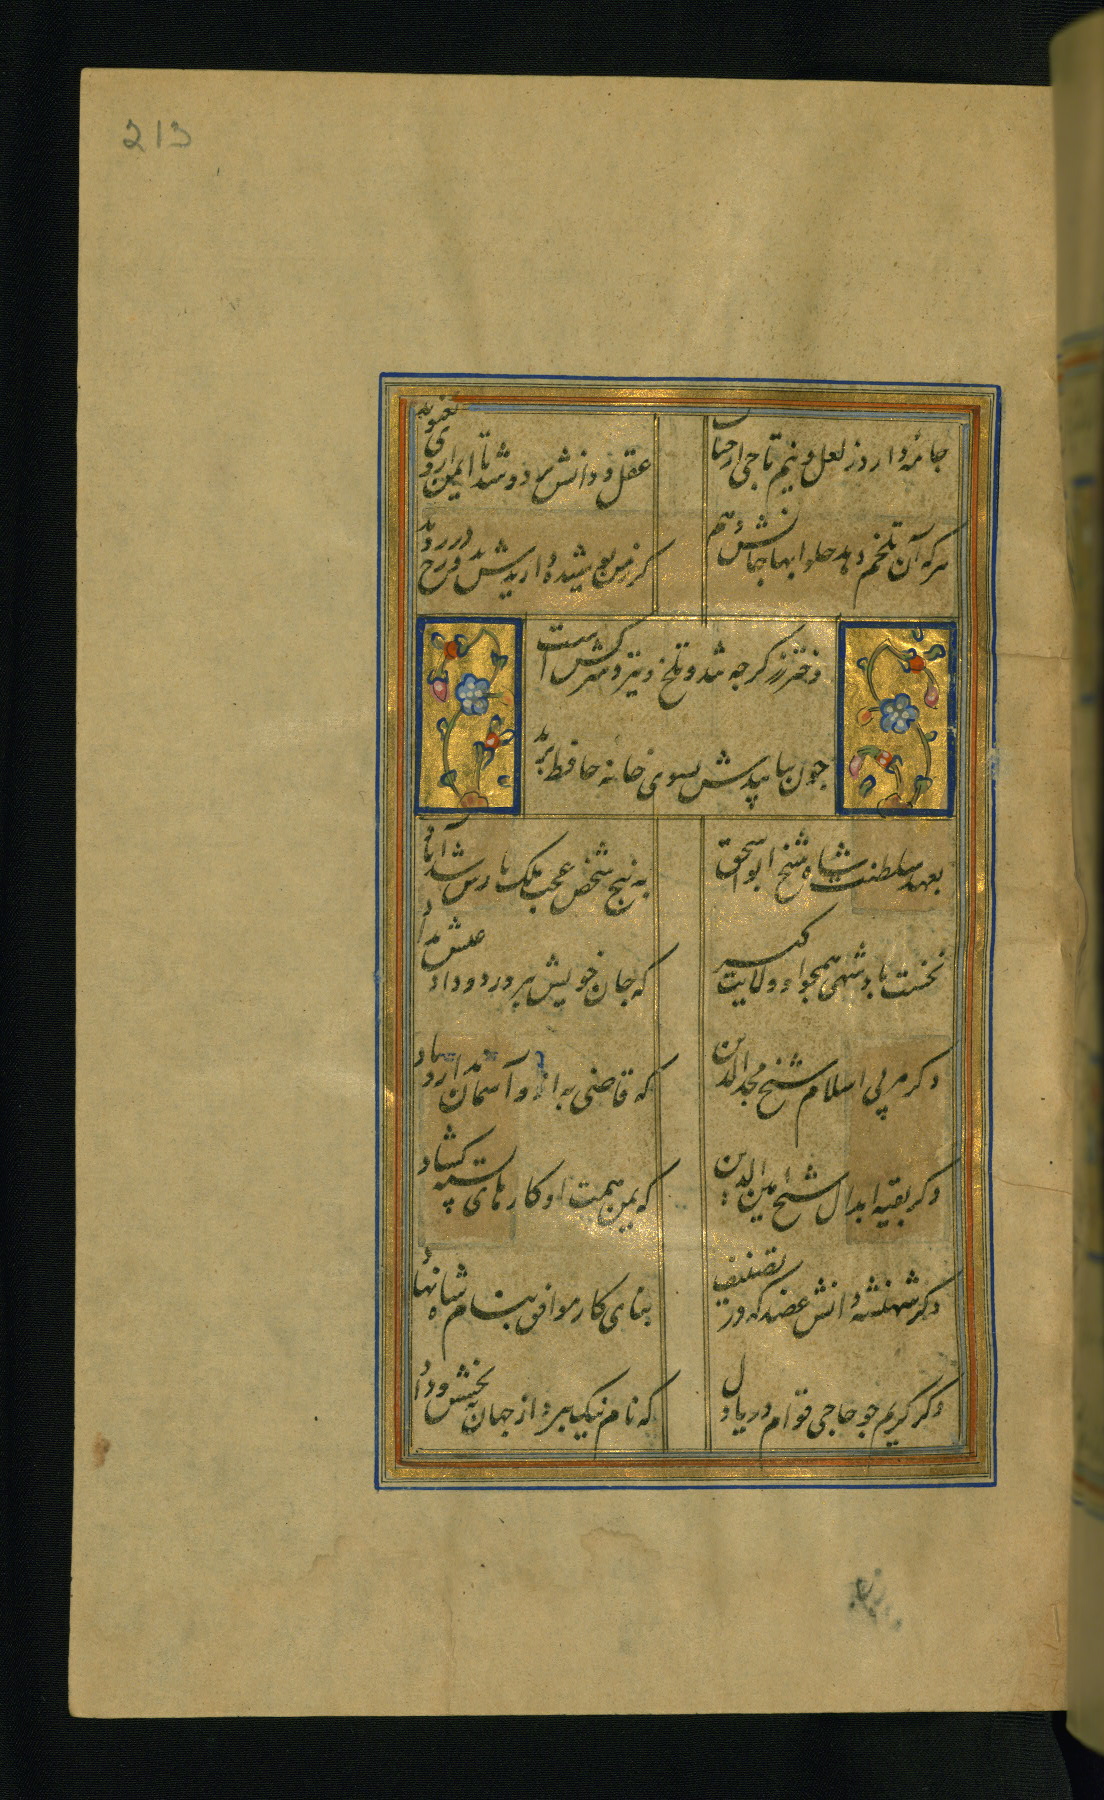 213
جامهٔ دارد ز لعل و نیم تاجی از حباب
عقل و دانش برد و شد تا ایمن از وی نغنوید
هر که آن تلخم دهد حلوا بها جانش دهم
کر زمن پوشیده داریدش و در رخ در روید
دختر رز کر چه شد و تلخ و تیز و سرکش است
چون بیابیدش بسوی خانه حافظ برید
بعهد سلطنت شاه شیخ ابواسحق
به پنج شخص عجب ملک پارس شد آباد
نخست پادشهی همچو او ولایت کیر
که جان خویش بپرورد و داد عیش بداد
دکر مربی اسلام شیخ مجدالدین
که قاضی به ازو آسمان ندارد یاد
دکر بقیه ابدال شیخ امین الدین
که یمن همت او کارهای بسته کشاد
دکر شهنشه دانش عضد که در تصنیف
بنای کار مواقف بنام شاه نهاد
دکر کریم چو حاجی قوام دریا دل
که نام نیک ببرد از جهان به بخشش و داد